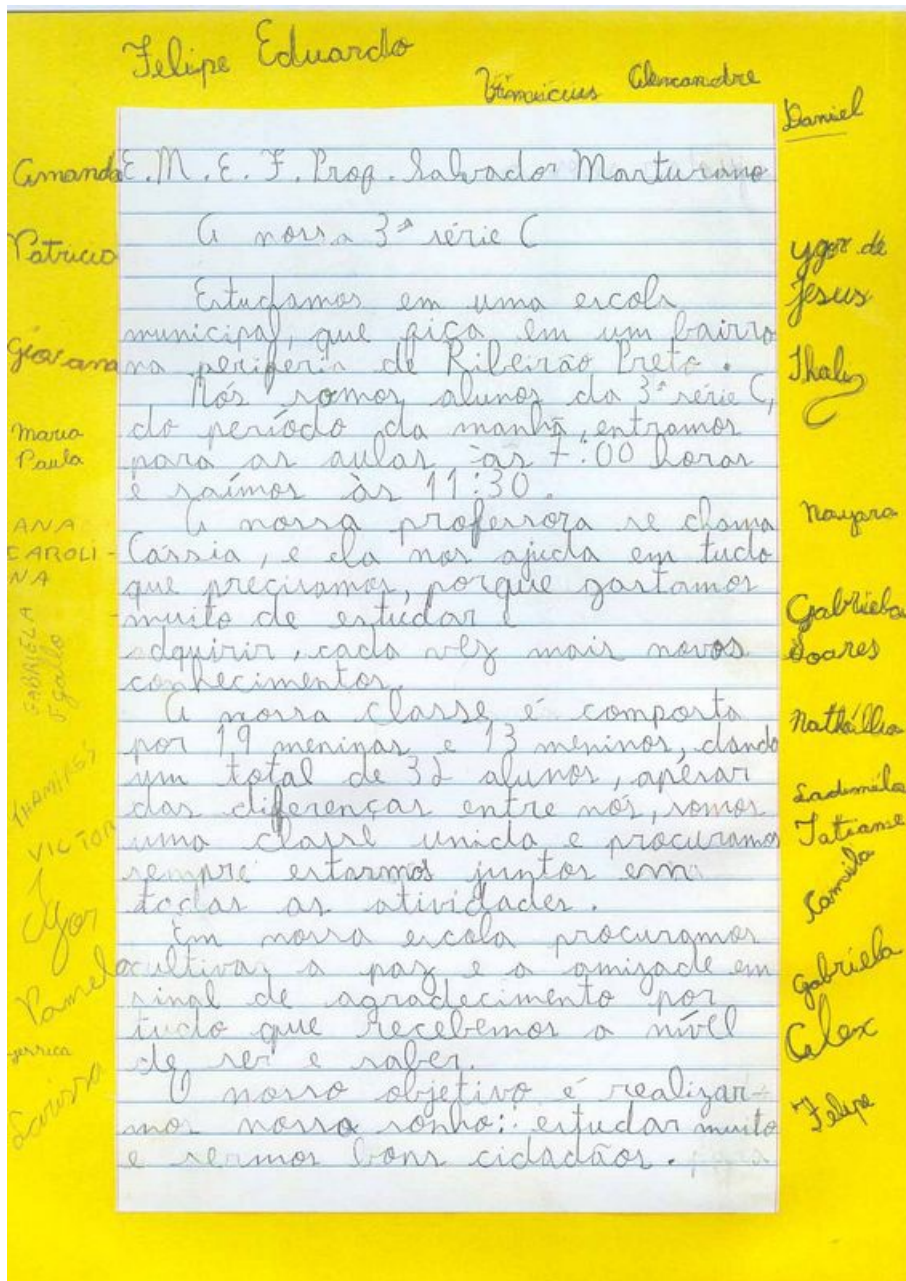 Felipe Eduardo
Vinicius Alexandre
Daniel
Amanda
Patricia
Giovana
Maria
Paula
ANA
CAROLI-
NA
GABRIELA
THAMIRES
VICTOR
Ygor
Pamela
Larissa
E.M.E.F. Prof. Salvador Marturano
A nossa 3ª série C
Estudamos em uma escola
municipal, que fica em um bairro
na periferia de Ribeirão Preto.
Nós somos alunos da 3ª série C,
do período da manhã, entramos
para as aulas às 7:00 horas
e saímos às 11:30.
A nossa professora se chama
Cássia, e ela nos ajuda em tudo
que precisamos, porque gostamos
muito de estudar e
adquirir, cada vez mais novos
conhecimentos.
A nossa classe é composta
por 19 meninas e 13 meninos, dando
um total de 32 alunos, apesar
das diferenças entre nós, somos
uma classe unida e procuramos
sempre estarmos juntos em
todas as atividades.
Em nossa escola procuramos
cultivar a paz e a amizade em
sinal de agradecimento por
tudo que recebemos a nível
de ser e saber.
O nosso objetivo é realizar-
mos nosso sonho: estudar muito
e sermos bons cidadãos.
Ygor de
Jesus
Thales
Nayara
Gabriela
Soares
Nathállia
Tatiane
Camila
Gabriela
Alex
Felipe